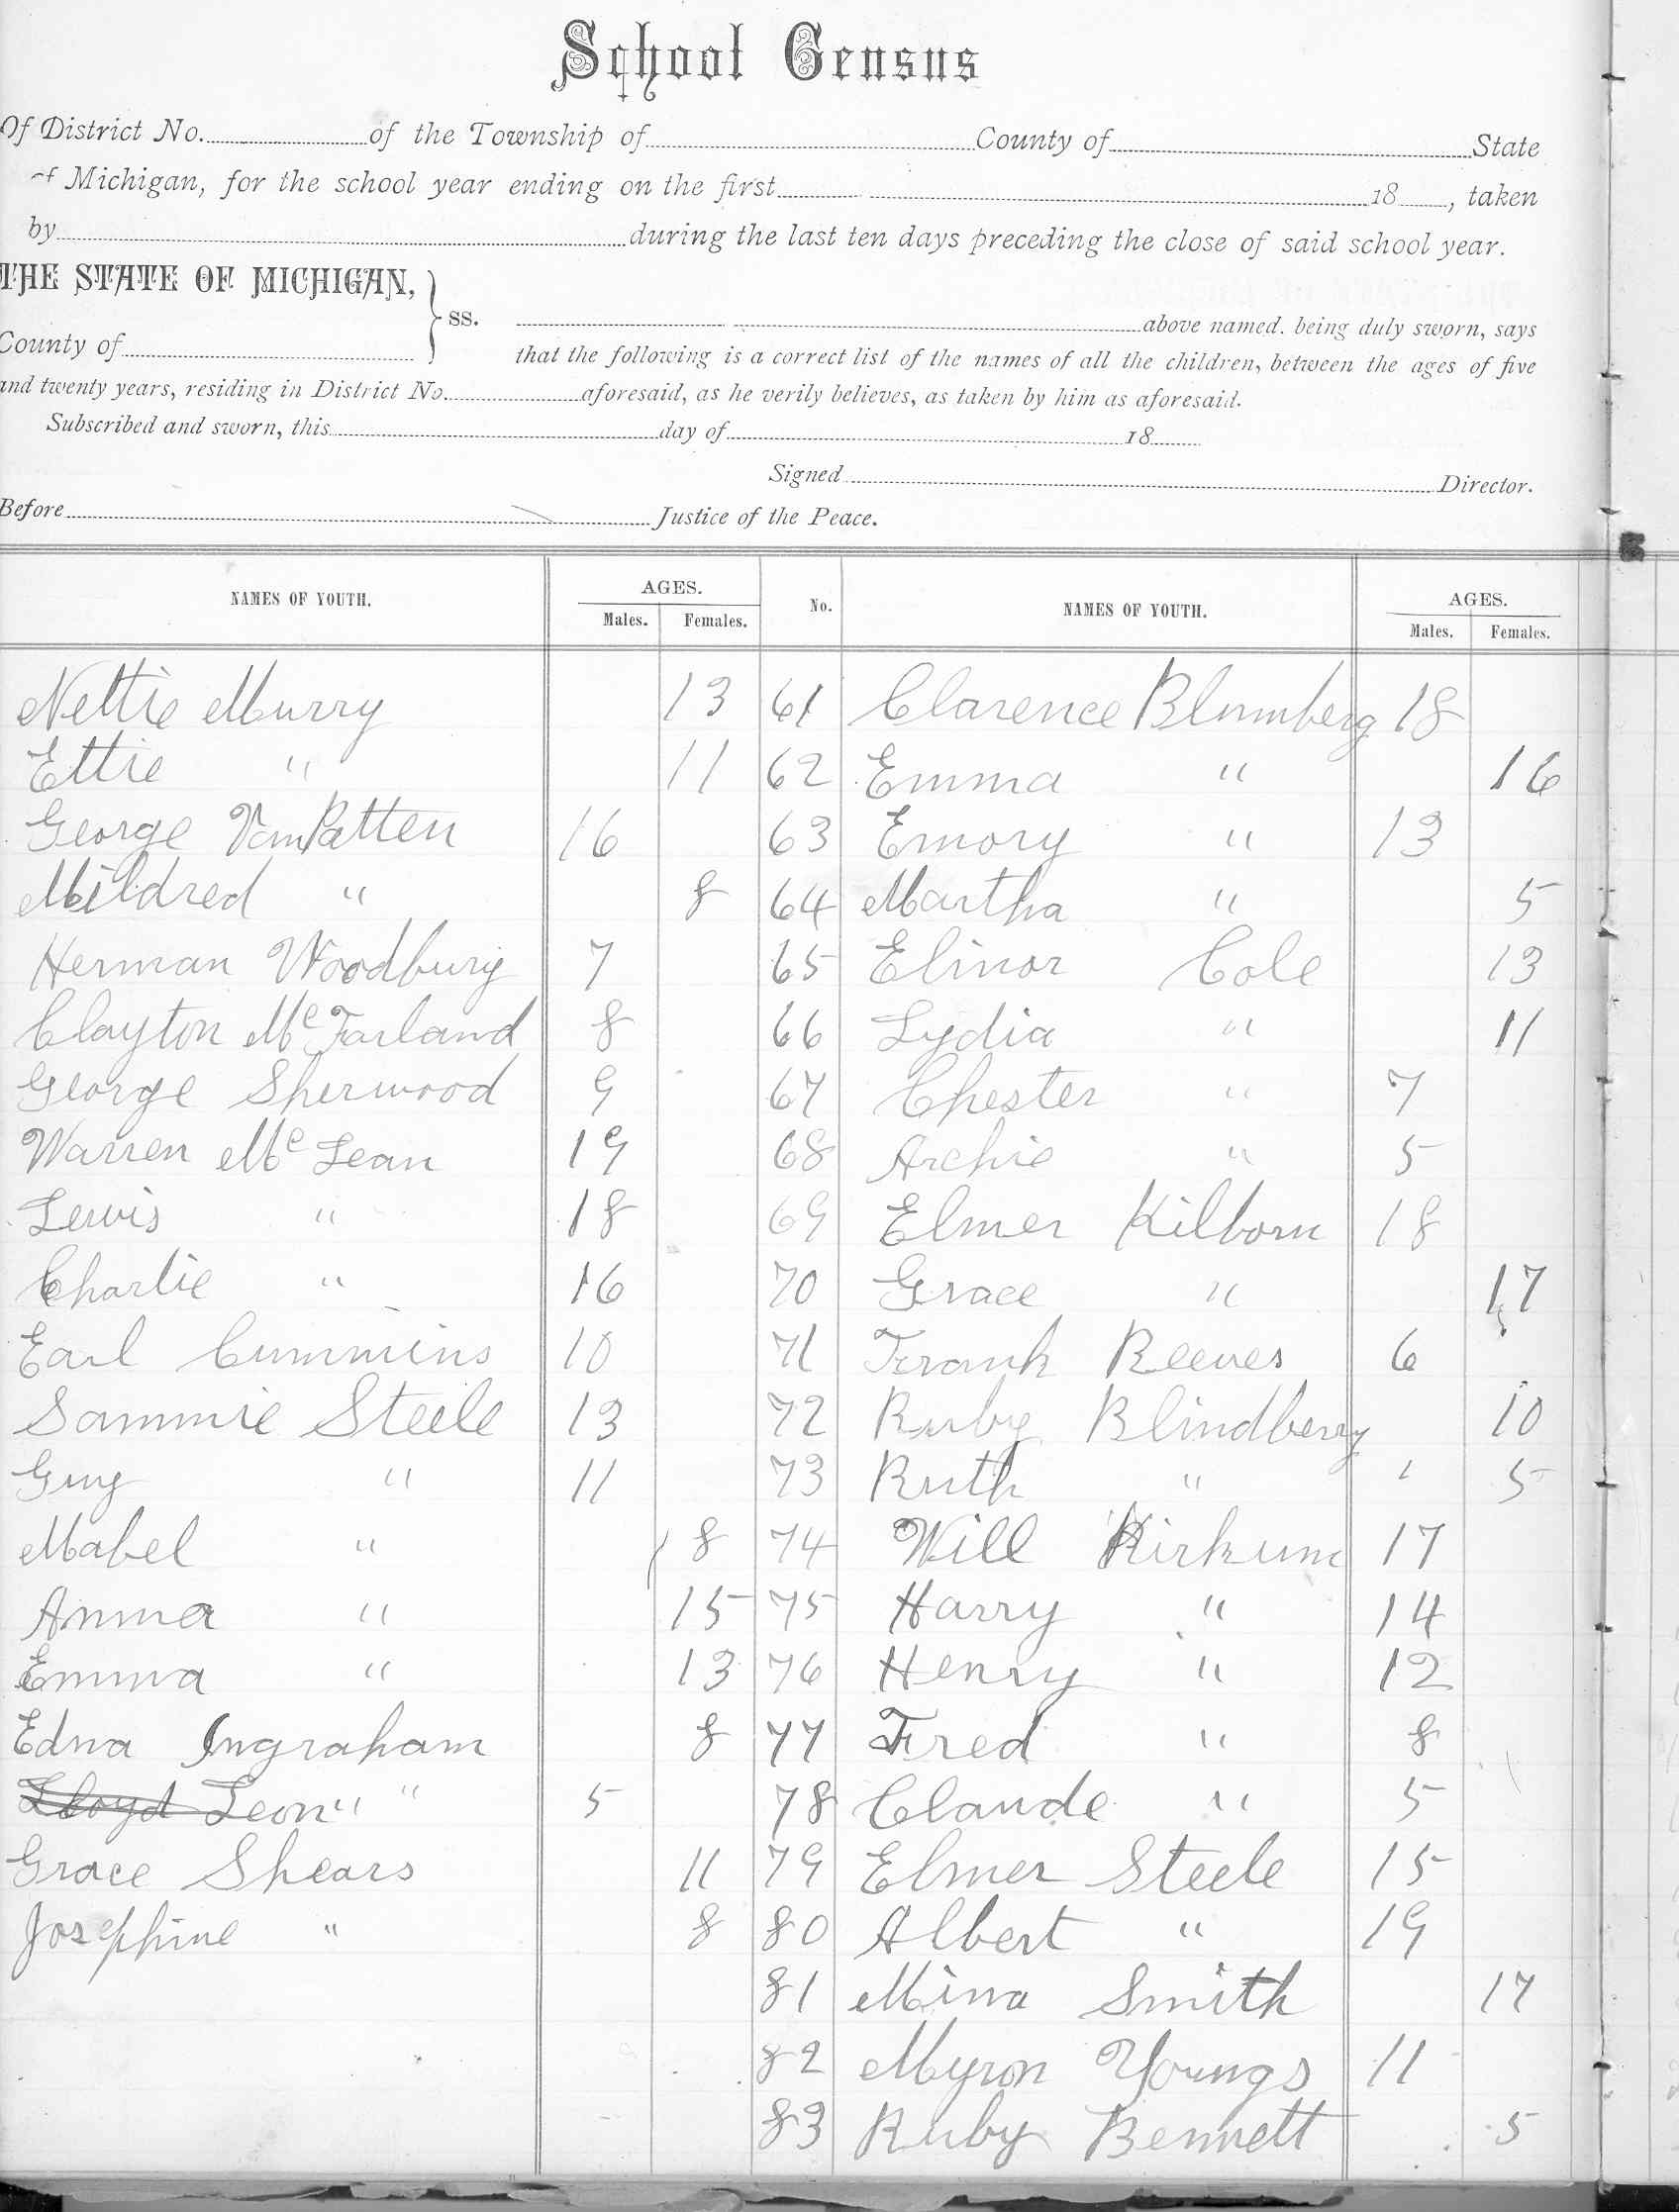 School Census
Of District No. of the Township of County of State
of Michigan, for the school year ending on the first 18 , taken
by during the last ten days preceding the close of said school year.
THE STATE OF MICHIGAN, } ss.
above named. being duly sworn, says
County of that the following is a correct list of the names of all the children, between the ages of five
and twenty years, residing in District No. aforesaid, as he verily believes, as taken by him as aforesaid.
Subscribed and sworn, this day of 18
Signed Director.
Before Justice of the Peace.
NAMES OF YOUTH. AGES. Males. Females. No. NAMES OF YOUTH. AGES. Males. Females.
Nettie Murry 13 61 Clarence Blumberg 18
Ettie " 11 62 Emma " 16
George VanPatten 16 63 Emory " 13
Mildred " 8 64 Martha " 5
Herman Woodbury 7 65 Elinor Cole 13
Clayton McFarland 8 66 Lydia " 11
George Sherwood 9 67 Chester " 7
Warren McLean 19 68 Archie " 5
Lewis " 18 69 Elmer Kilborn 18
Charlie " 16 70 Grace " 17
Earl Cummins 10 71 Frank Reeves 6
Sammie Steele 13 72 Ruby Blindberry 10
Guy " 11 73 Ruth " 5
Mabel " 8 74 Will Kirkum 17
Anna " 15 75 Harry " 14
Emma " 13 76 Henry " 12
Edna Ingraham 8 77 Fred " 8
Lloyd Leon " " 5 78 Claude " 5
Grace Shears 11 79 Elmer Steele 15
Josephine " 8 80 Albert " 19
81 Mina Smith 17
82 Myron Youngs 11
83 Ruby Bennett 5